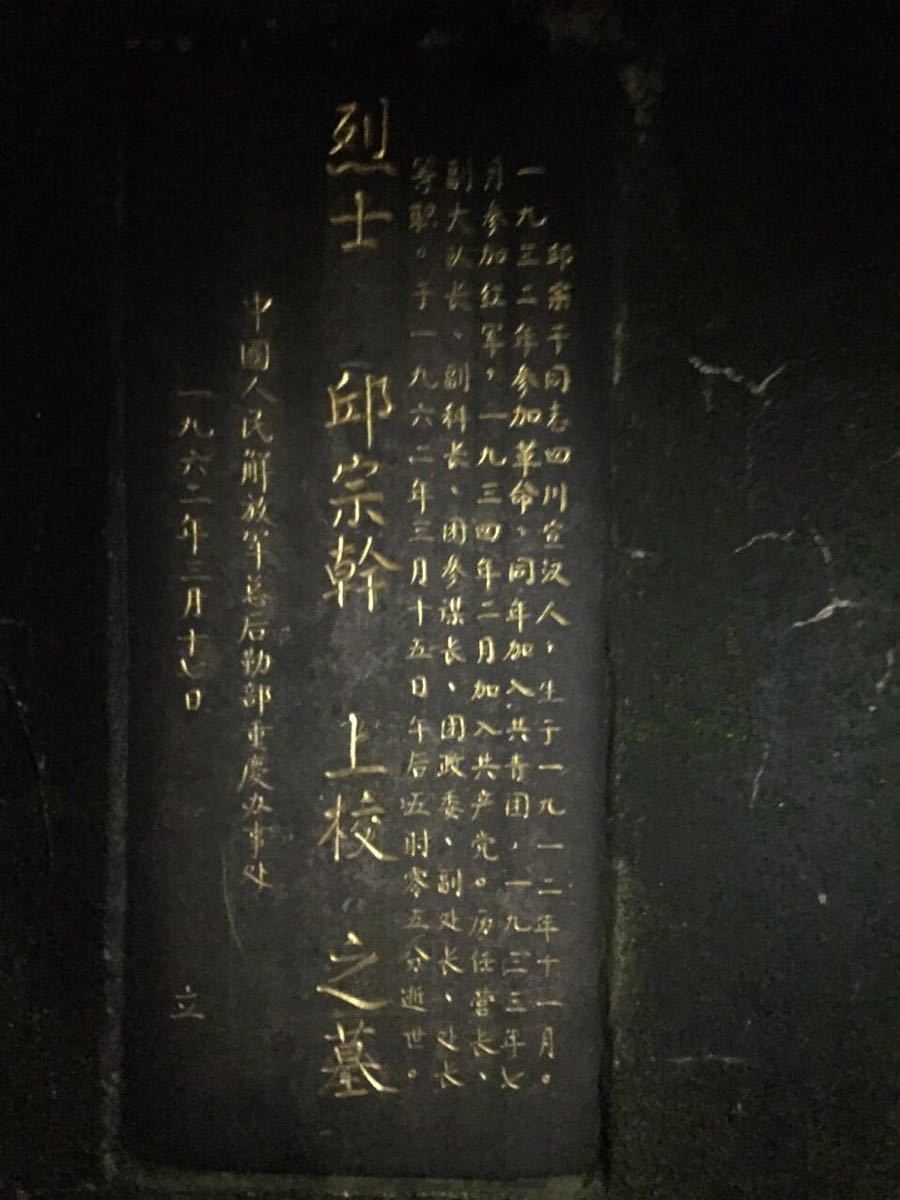 邱宗干同志四川宣汉人，生于一九一二年十一月。
一九三二年参加革命，同年加入共青团，一九三三年七
月参加红军，一九三四年二月加入共产党。历任营长、
副大队长、副科长、团参谋长、团政委、副处长、处长
等职。于一九六二年三月十五日午后五时零五分逝世。
烈士 邱宗幹 上校 之墓
中國人民解放军总后勤部重慶办事处
一九六二年三月十日 立